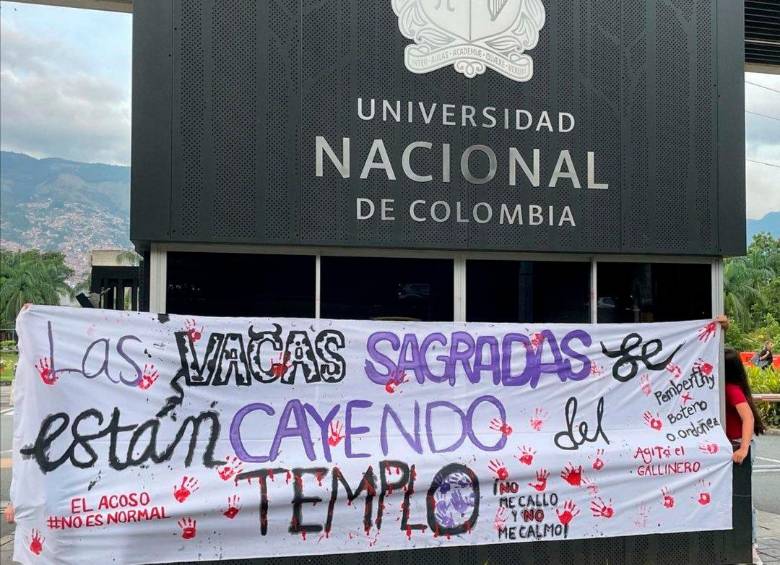 INTER AULAS ACADEMIÆ QUÆRE VERUM
UNIVERSIDAD
NACIONAL
DE COLOMBIA
Las VACAS SAGRADAS se
están CAYENDO del
TEMPLO
EL ACOSO
#NO ES NORMAL
¡NO
ME CALLO
Y NO
ME CALMO!
Pemberthy
x
Botero
O Ordóñez
Agité el
GALLINERO